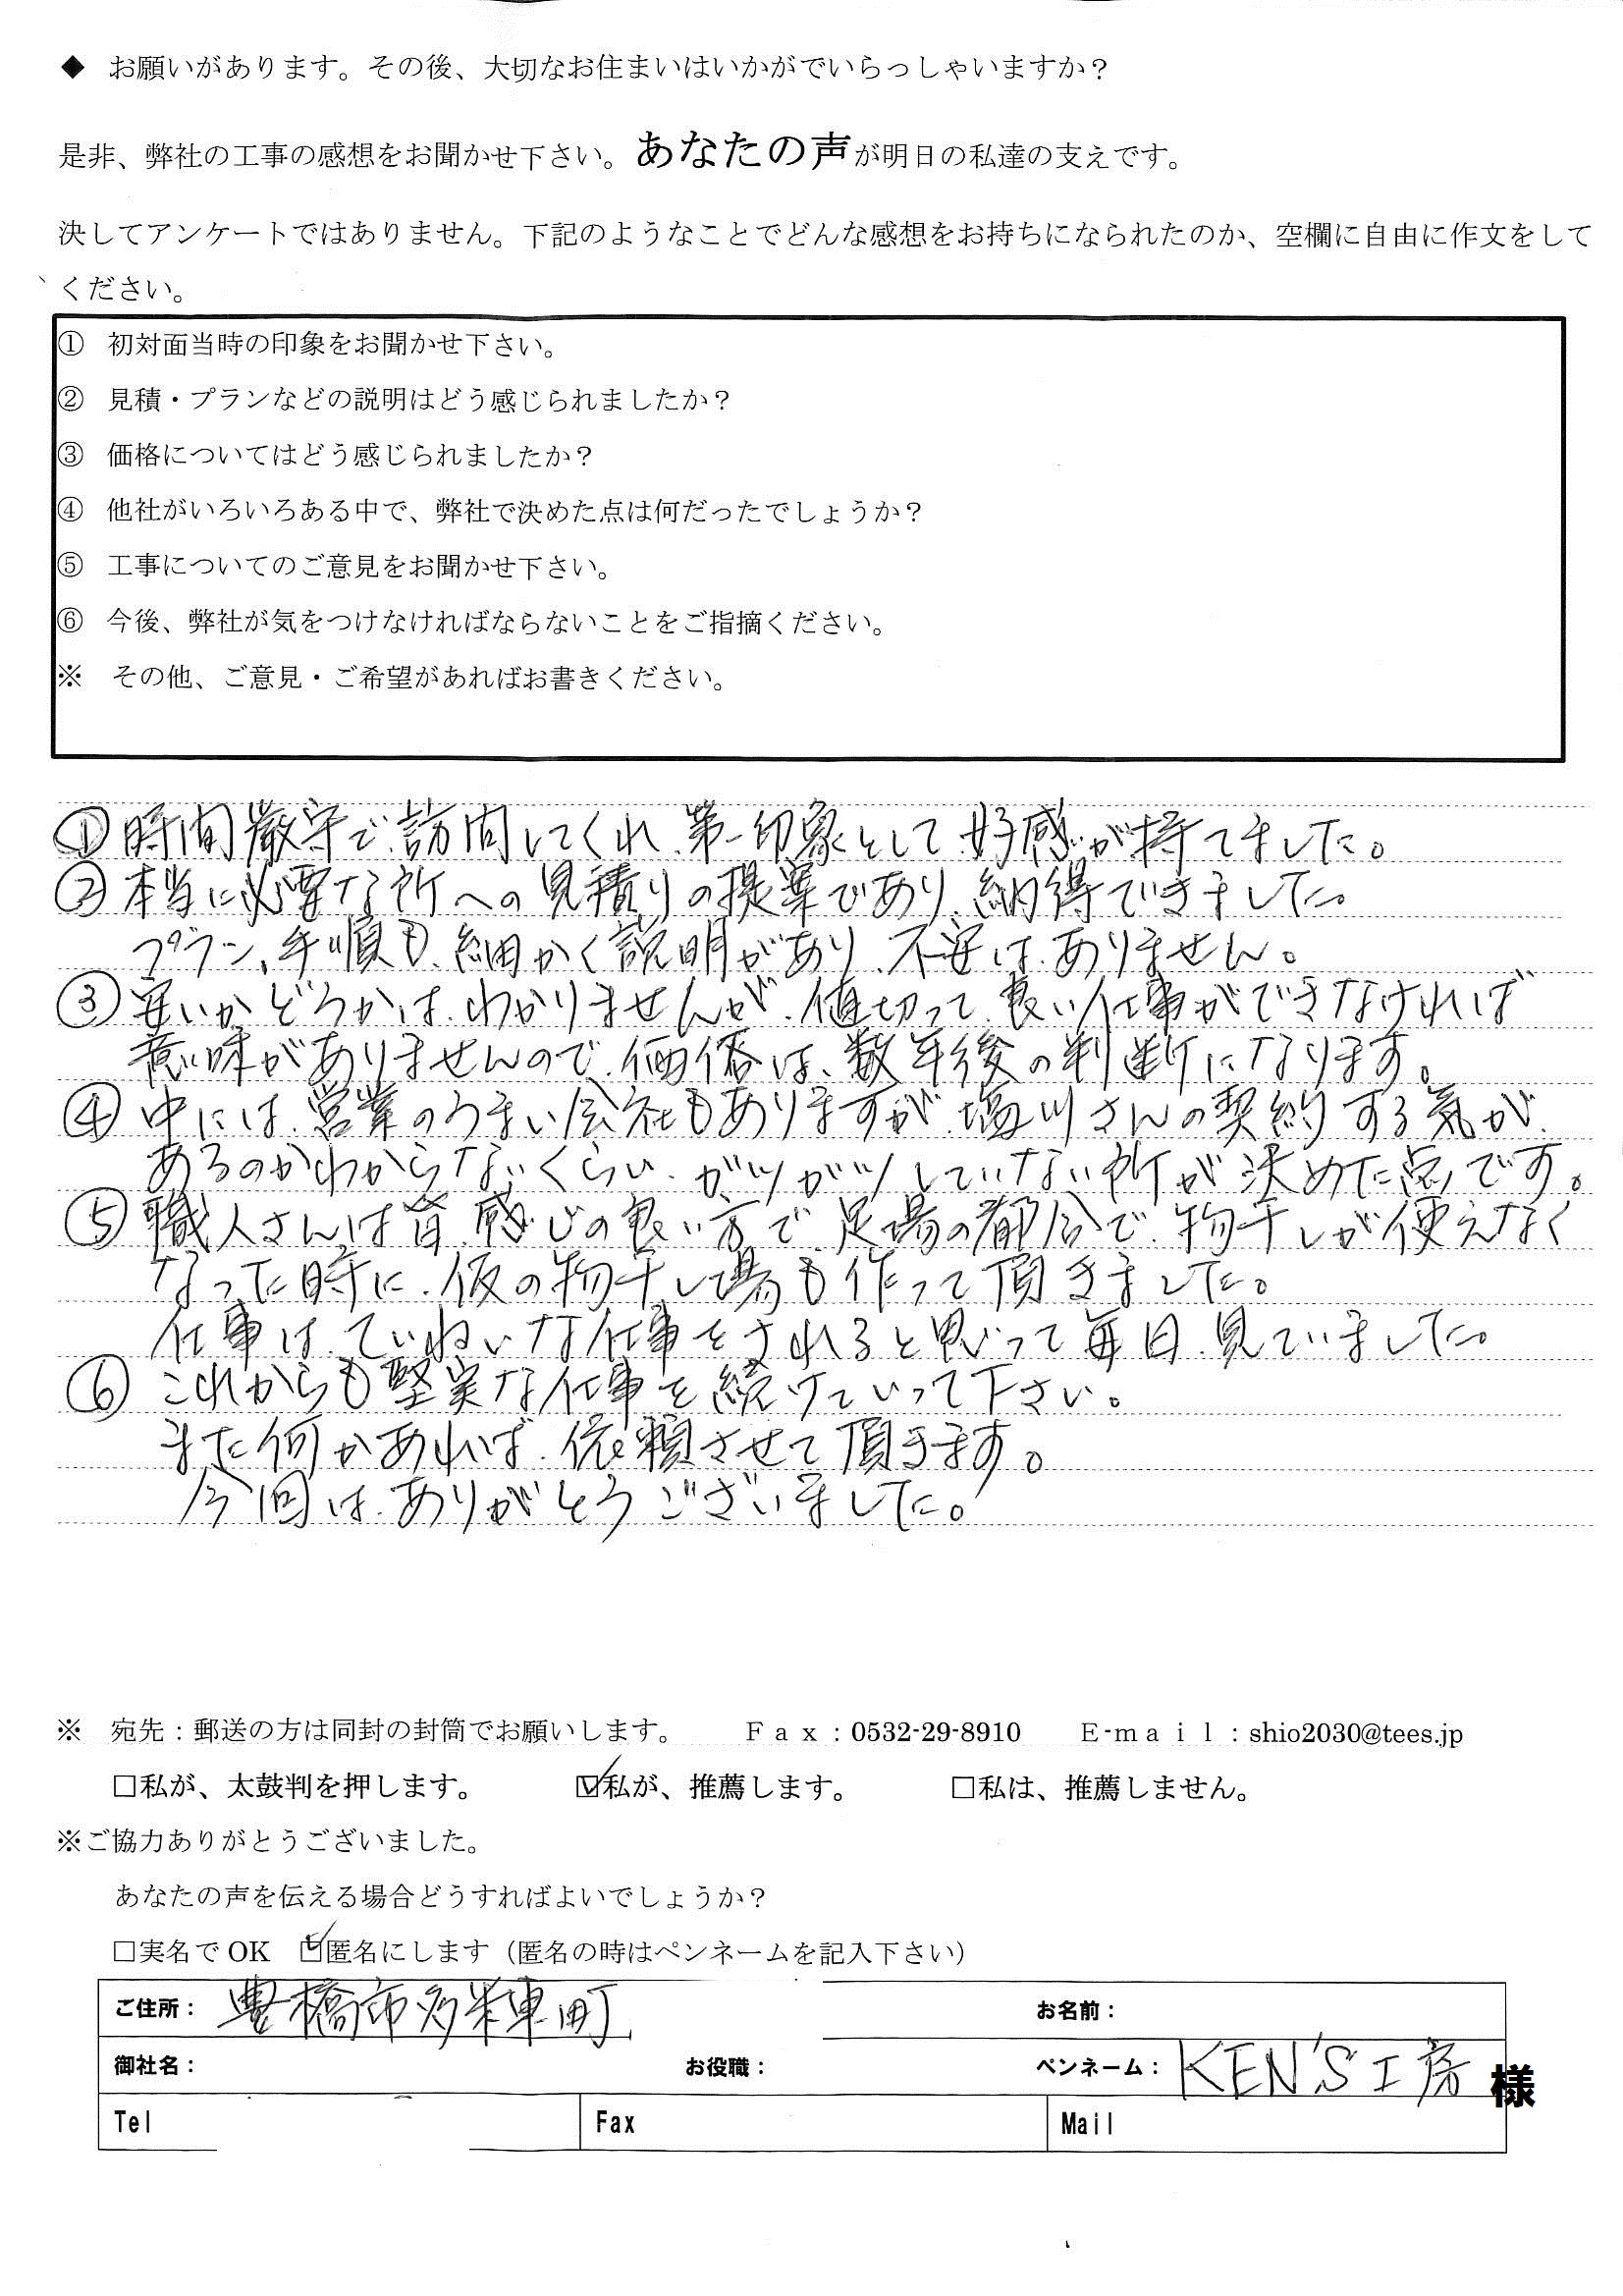 ◆ お願いがあります。その後、大切なお住まいはいかがでいらっしゃいますか？
是非、弊社の工事の感想をお聞かせ下さい。あなたの声が明日の私達の支えです。
決してアンケートではありません。下記のようなことでどんな感想をお持ちになられたのか、空欄に自由に作文をして
ください。
① 初対面当時の印象をお聞かせ下さい。
② 見積・プランなどの説明はどう感じられましたか？
③ 価格についてはどう感じられましたか？
④ 他社がいろいろある中で、弊社で決めた点は何だったでしょうか？
⑤ 工事についてのご意見をお聞かせ下さい。
⑥ 今後、弊社が気をつけなければならないことをご指摘ください。
※ その他、ご意見・ご希望があればお書きください。
① 時間厳守で、訪問してくれ、第一印象として、好感が持てました。
② 本当に必要な所への見積りの提案であり、納得できました。
プラン、手順も、細かく説明があり、不安は、ありません。
③ 安いかどうかは、わかりませんが、値切って、良い仕事ができなければ
意味がありませんので、価格は、数年後の判断になります。
④ 中には、営業のうまい会社もありますが、塩川さんの契約する気が、
あるのかわからないくらい、ガツガツしていない所が決めた点です。
⑤ 職人さんは皆、感じの良い方で、足場の都合で、物干しが使えなく
なった時に、仮の物干し場も作って頂きました。
仕事は、ていねいな仕事をされると思って毎日、見ていました。
⑥ これからも堅実な仕事を続けていって下さい。
また何かあれば、依頼させて頂きます。
今回は、ありがとうございました。
※ 宛先：郵送の方は同封の封筒でお願いします。 Ｆａｘ：0532-29-8910 Ｅ-ｍａｉｌ：shio2030@tees.jp
□私が、太鼓判を押します。 ☑私が、推薦します。 □私は、推薦しません。
※ご協力ありがとうございました。
あなたの声を伝える場合どうすればよいでしょうか？
□実名で OK ☑匿名にします（匿名の時はペンネームを記入下さい）
ご住所： 豊橋市多米東町 お名前：
御社名： お役職： ペンネーム： KEN'S工房 様
Tel Fax Mail